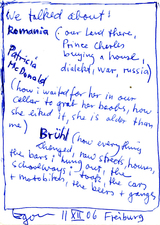 We talked about:
Romania (: our land there,
Prince Charles
buying a house,
dialekt, war, russia)
Patricia
McDonald
(how i waited for her in our
cellar to grab her boobs, how
she liked it, she is older than
me)
Brühl (how everything
changed, new streets, houses,
the bars; hung out, the
schoolways; took, the cars
+ motobikes, the beers + gangs
Egon 11 XII 06 Freiburg